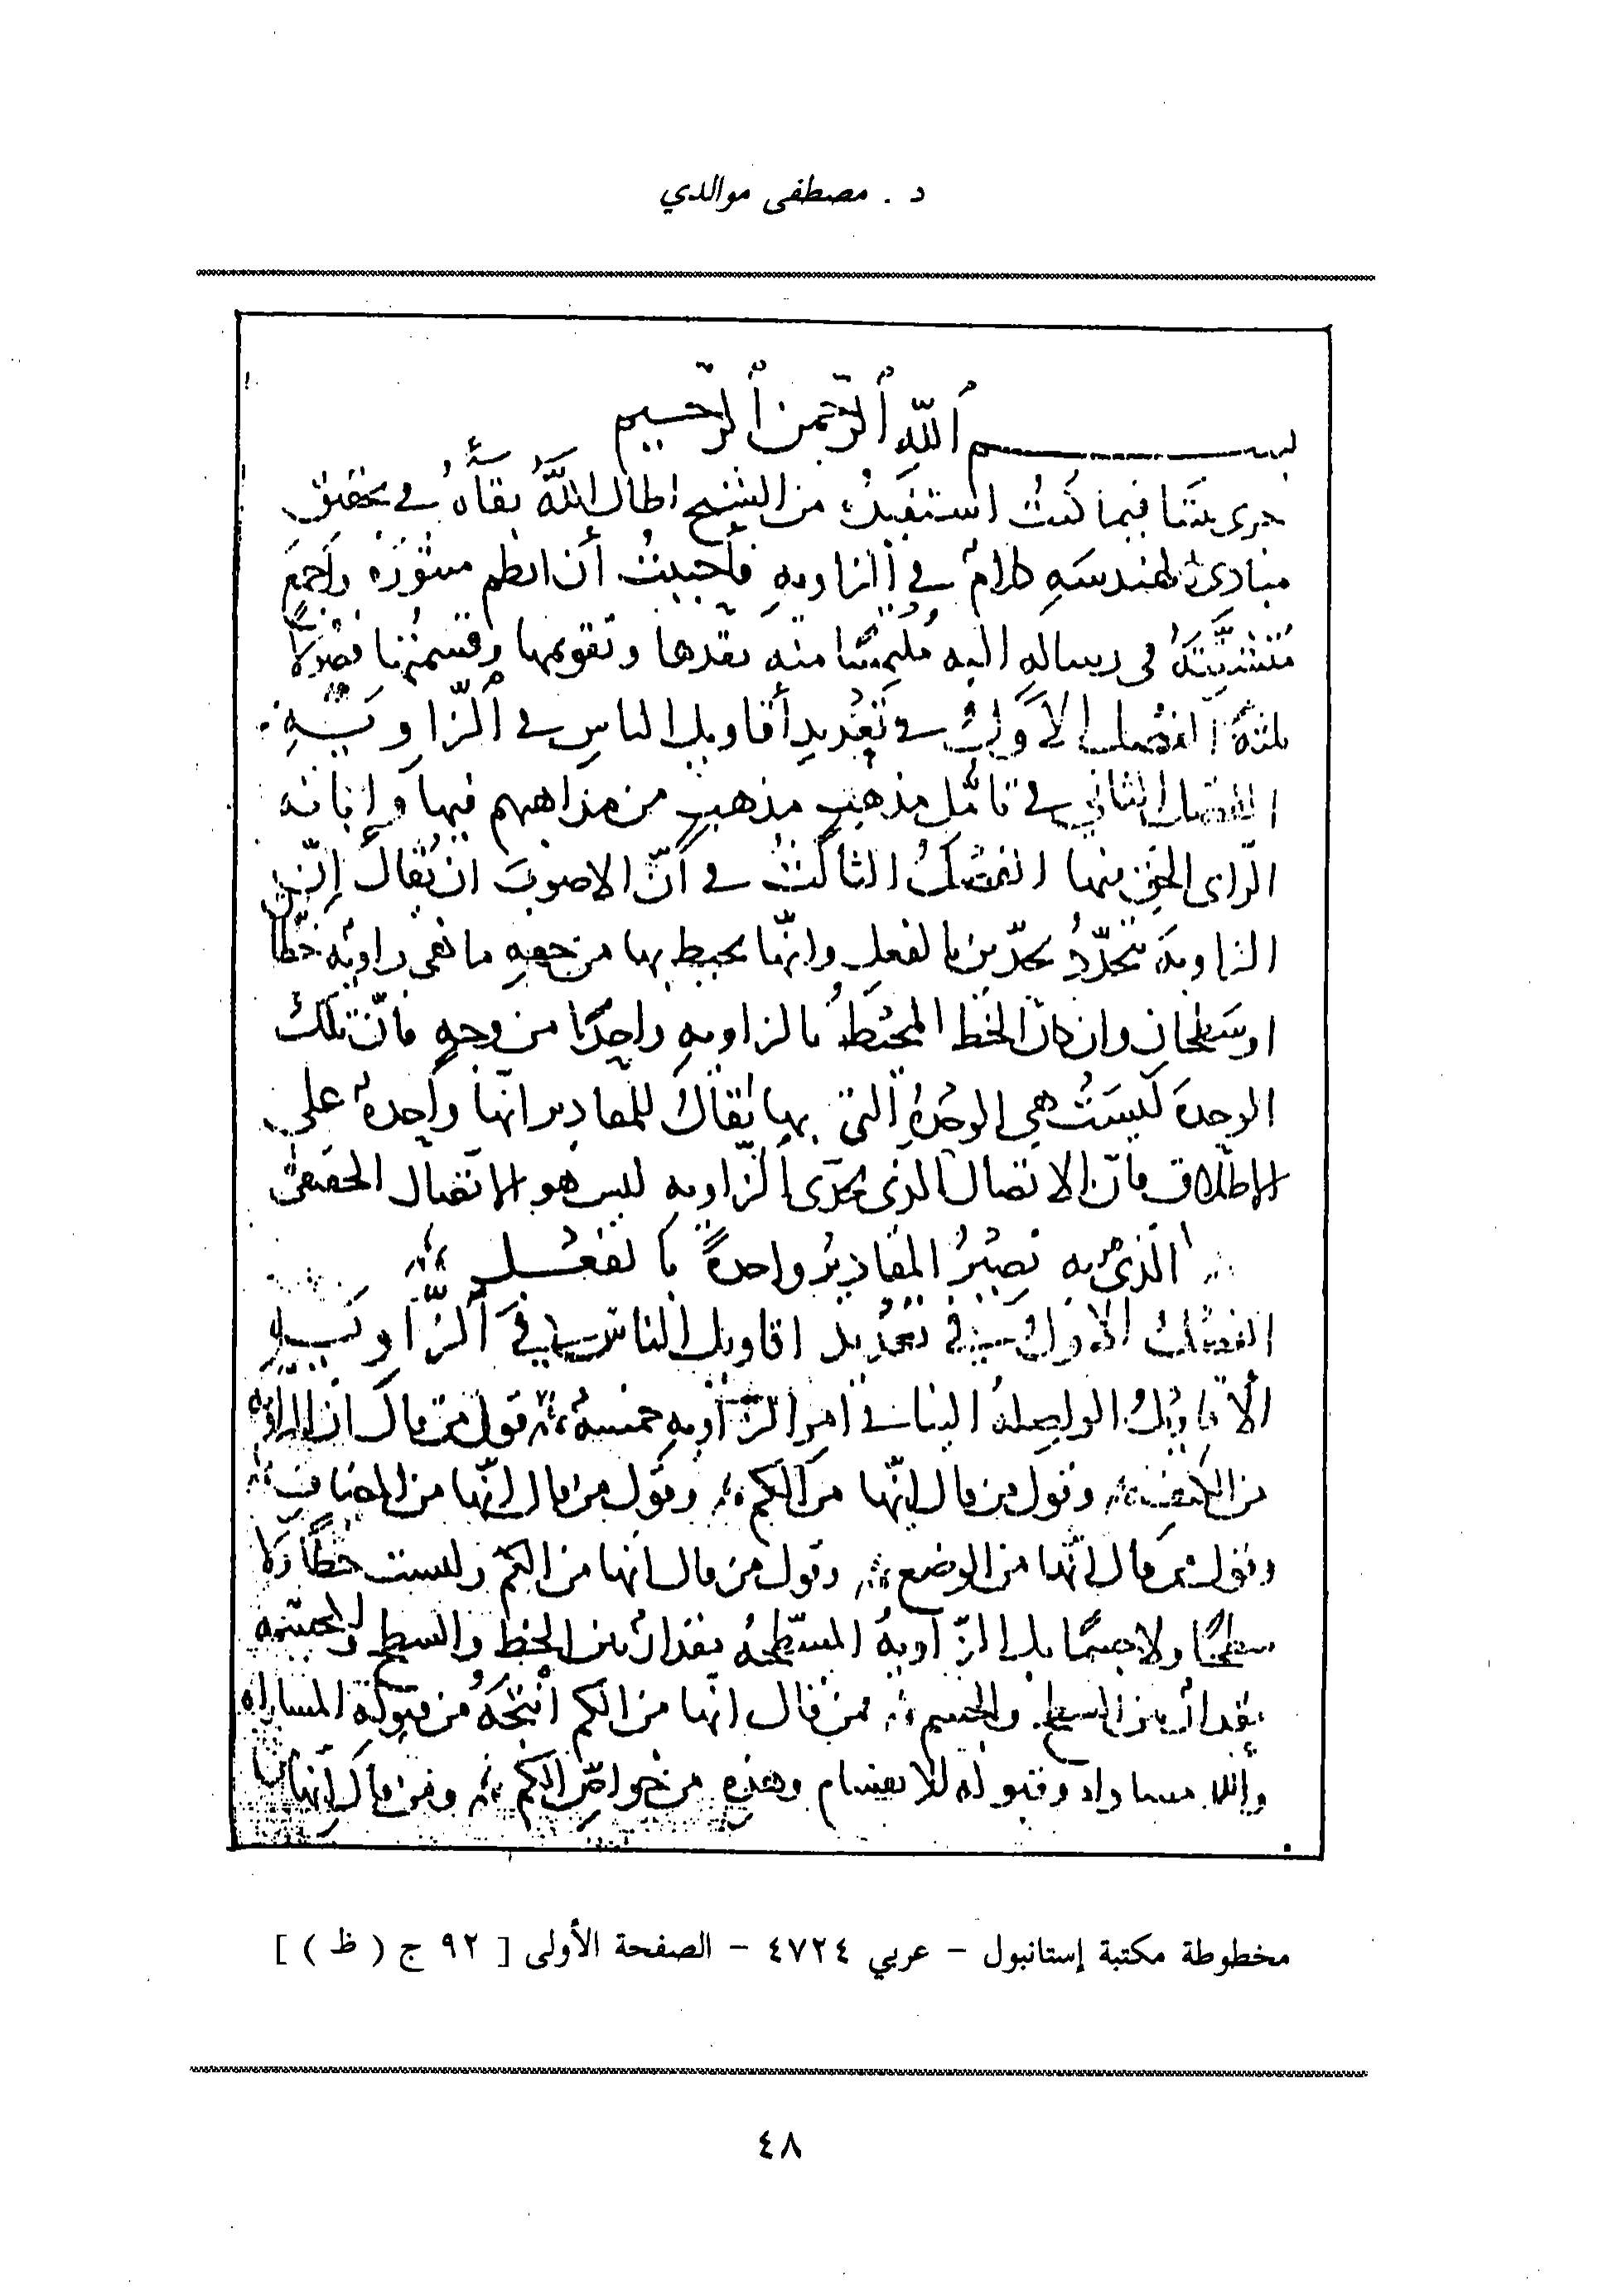 د . مصطفى موالدي
بسم الله الرحمن الرحيم
جرى بيننا فيما كنت استفيد من الشيخ اطال الله بقاه في تحقيق
مبادئ الهندسه كلام في الزاويه فأحببت أن انظم منثوره واجمع
متشتته في رساله اليه ملتمسا منه نقدها وتقويمها وقسمتها فصولا
ثلثة الفصل الاول في تعديد أقاويل الناس في الزاوية
الفصل الثاني في تامل مذهب مذهب من مذاهبهم فيها وابانه
الراى الحق منها الفصل الثالث في أن الاصوب ان يقال إن
الزاوية تتحدد بحدين بالفعل وانها يحيط بها من جهه ما هي زاويه خطا
او سطحان وان كان الخط المحيط بالزاويه واحدا من وجه فان تلك
الوحدة ليست هي الوحدة التي بها يقال للمقادير انها واحدة على
الاطلاق فان الاتصال الذى بحدى الزاويه ليس هو الاتصال الحقيقى
الذى به تصير المقادير واحدة بالفعل
الفصل الاول في تعديد اقاويل الناس في الزاوية
ألاقاويل الواصلة الينا في امر الزاويه خمسة قول من قال ان الزاويه
من الكيف وقول من قال انها من الكم وقول من قال انها من المضاف
وقول من قال انها من الوضع وقول من قال انها من الكم وليست خطا ولا
سطحا ولا جسما بل الزاوية المسطحة مقدار بين الخط والسطح والمجسمه
مقدار بين السطح والجسم فمن قال انها من الكم أنتجه من قبوله المساواه
واللا مساواه وقبوله للانقسام وهذه من خواص الكم ومن قال انها
مخطوطة مكتبة إستانبول - عربي ٤٧٢٤ - الصفحة الأولى [ ٩٢ ج ( ظ ) ]
٤٨